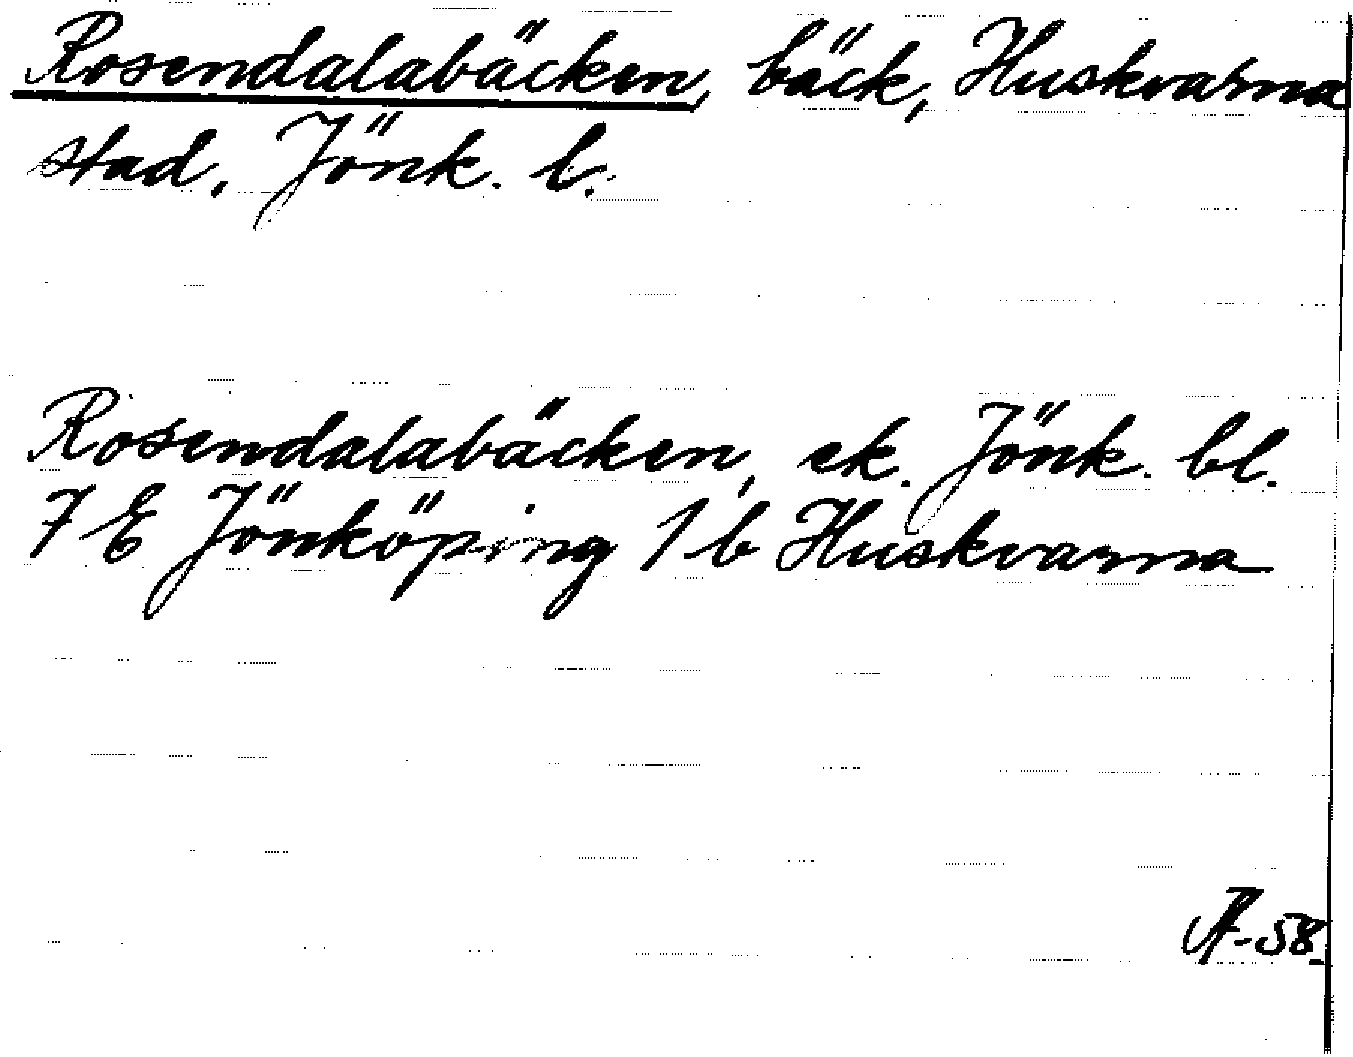 Rosendalabäcken, bäck, Huskvarna
stad, Jönk. l.
Rosendalabäcken, ek. Jönk. bl.
7 E Jönköping 1 b Huskvarna
-58